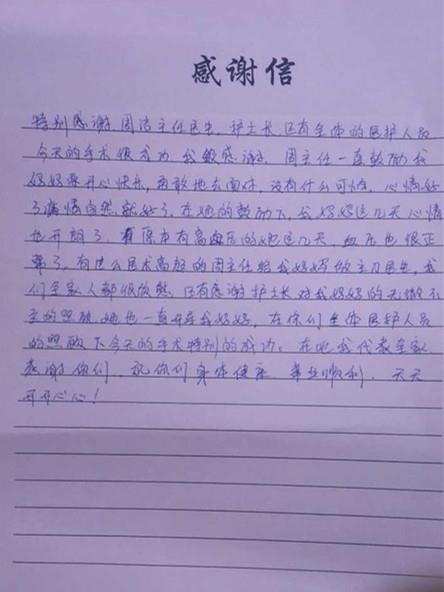 感谢信
特别感谢周洁主任医生,护士长还有全体的医护人员
今天的手术很成功 我很感谢,周主任一直鼓励我
妈妈要开心快乐,勇敢地去面对,没有什么可怕,心情好
了病情自然就好了,在她的鼓励下,我妈妈这几天心情
也开朗了,原本有高血压的她这几天,血压也很正
常了,有这么医术高超的周主任给我妈妈做主刀医生,我
们全家人都很放心,还有感谢护士长对我妈妈的无微不
至的照顾,她也一直开导我妈妈,在你们全体医护人员
的照顾下今天的手术特别的成功。在此我代表全家
感谢你们,祝你们身体健康 事业顺利,天天
开开心心!